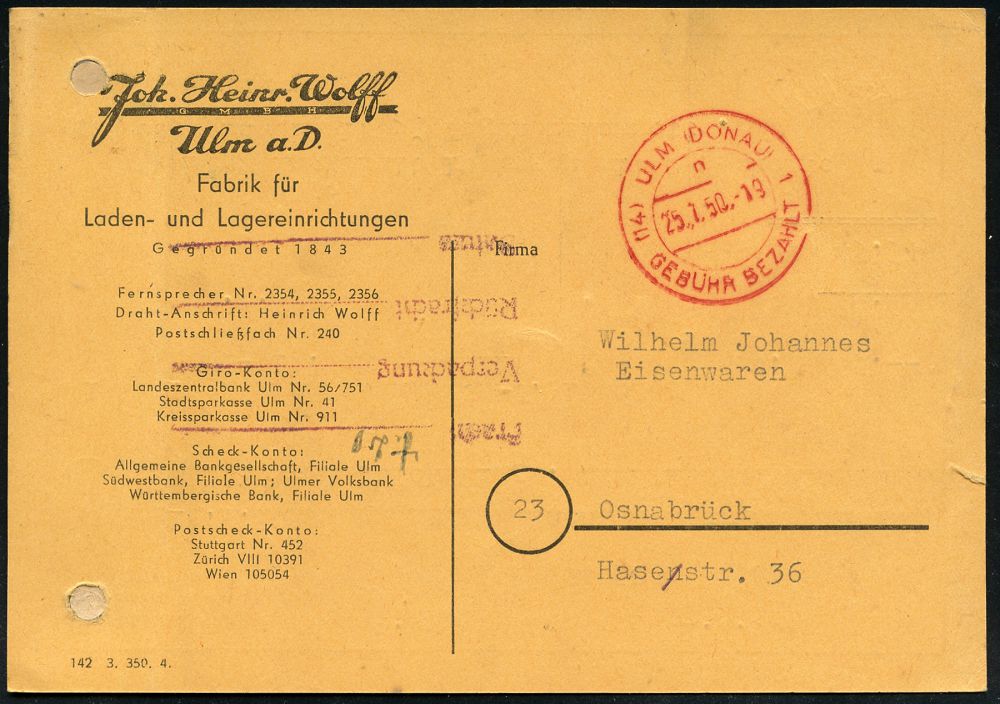 Joh. Heinr. Wolff
GMBH
Ulm a.D.
Fabrik für
Laden- und Lagereinrichtungen
Gegründet 1843
Fernsprecher Nr. 2354, 2355, 2356
Draht-Anschrift: Heinrich Wolff
Postschließfach Nr. 240
Giro-Konto:
Landeszentralbank Ulm Nr. 56/751
Stadtsparkasse Ulm Nr. 41
Kreissparkasse Ulm Nr. 911
Scheck-Konto:
Allgemeine Bankgesellschaft, Filiale Ulm
Südwestbank, Filiale Ulm; Ulmer Volksbank
Württembergische Bank, Filiale Ulm
Postscheck-Konto:
Stuttgart Nr. 452
Zürich VIII 10391
Wien 105054
142 3. 350. 4.
Fracht
Verpackung
Rückfracht
(14) ULM (DONAU) 1
n
25.7.50.-19
GEBÜHR BEZAHLT
Firma
Wilhelm Johannes
Eisenwaren
23 Osnabrück
Hasenstr. 36